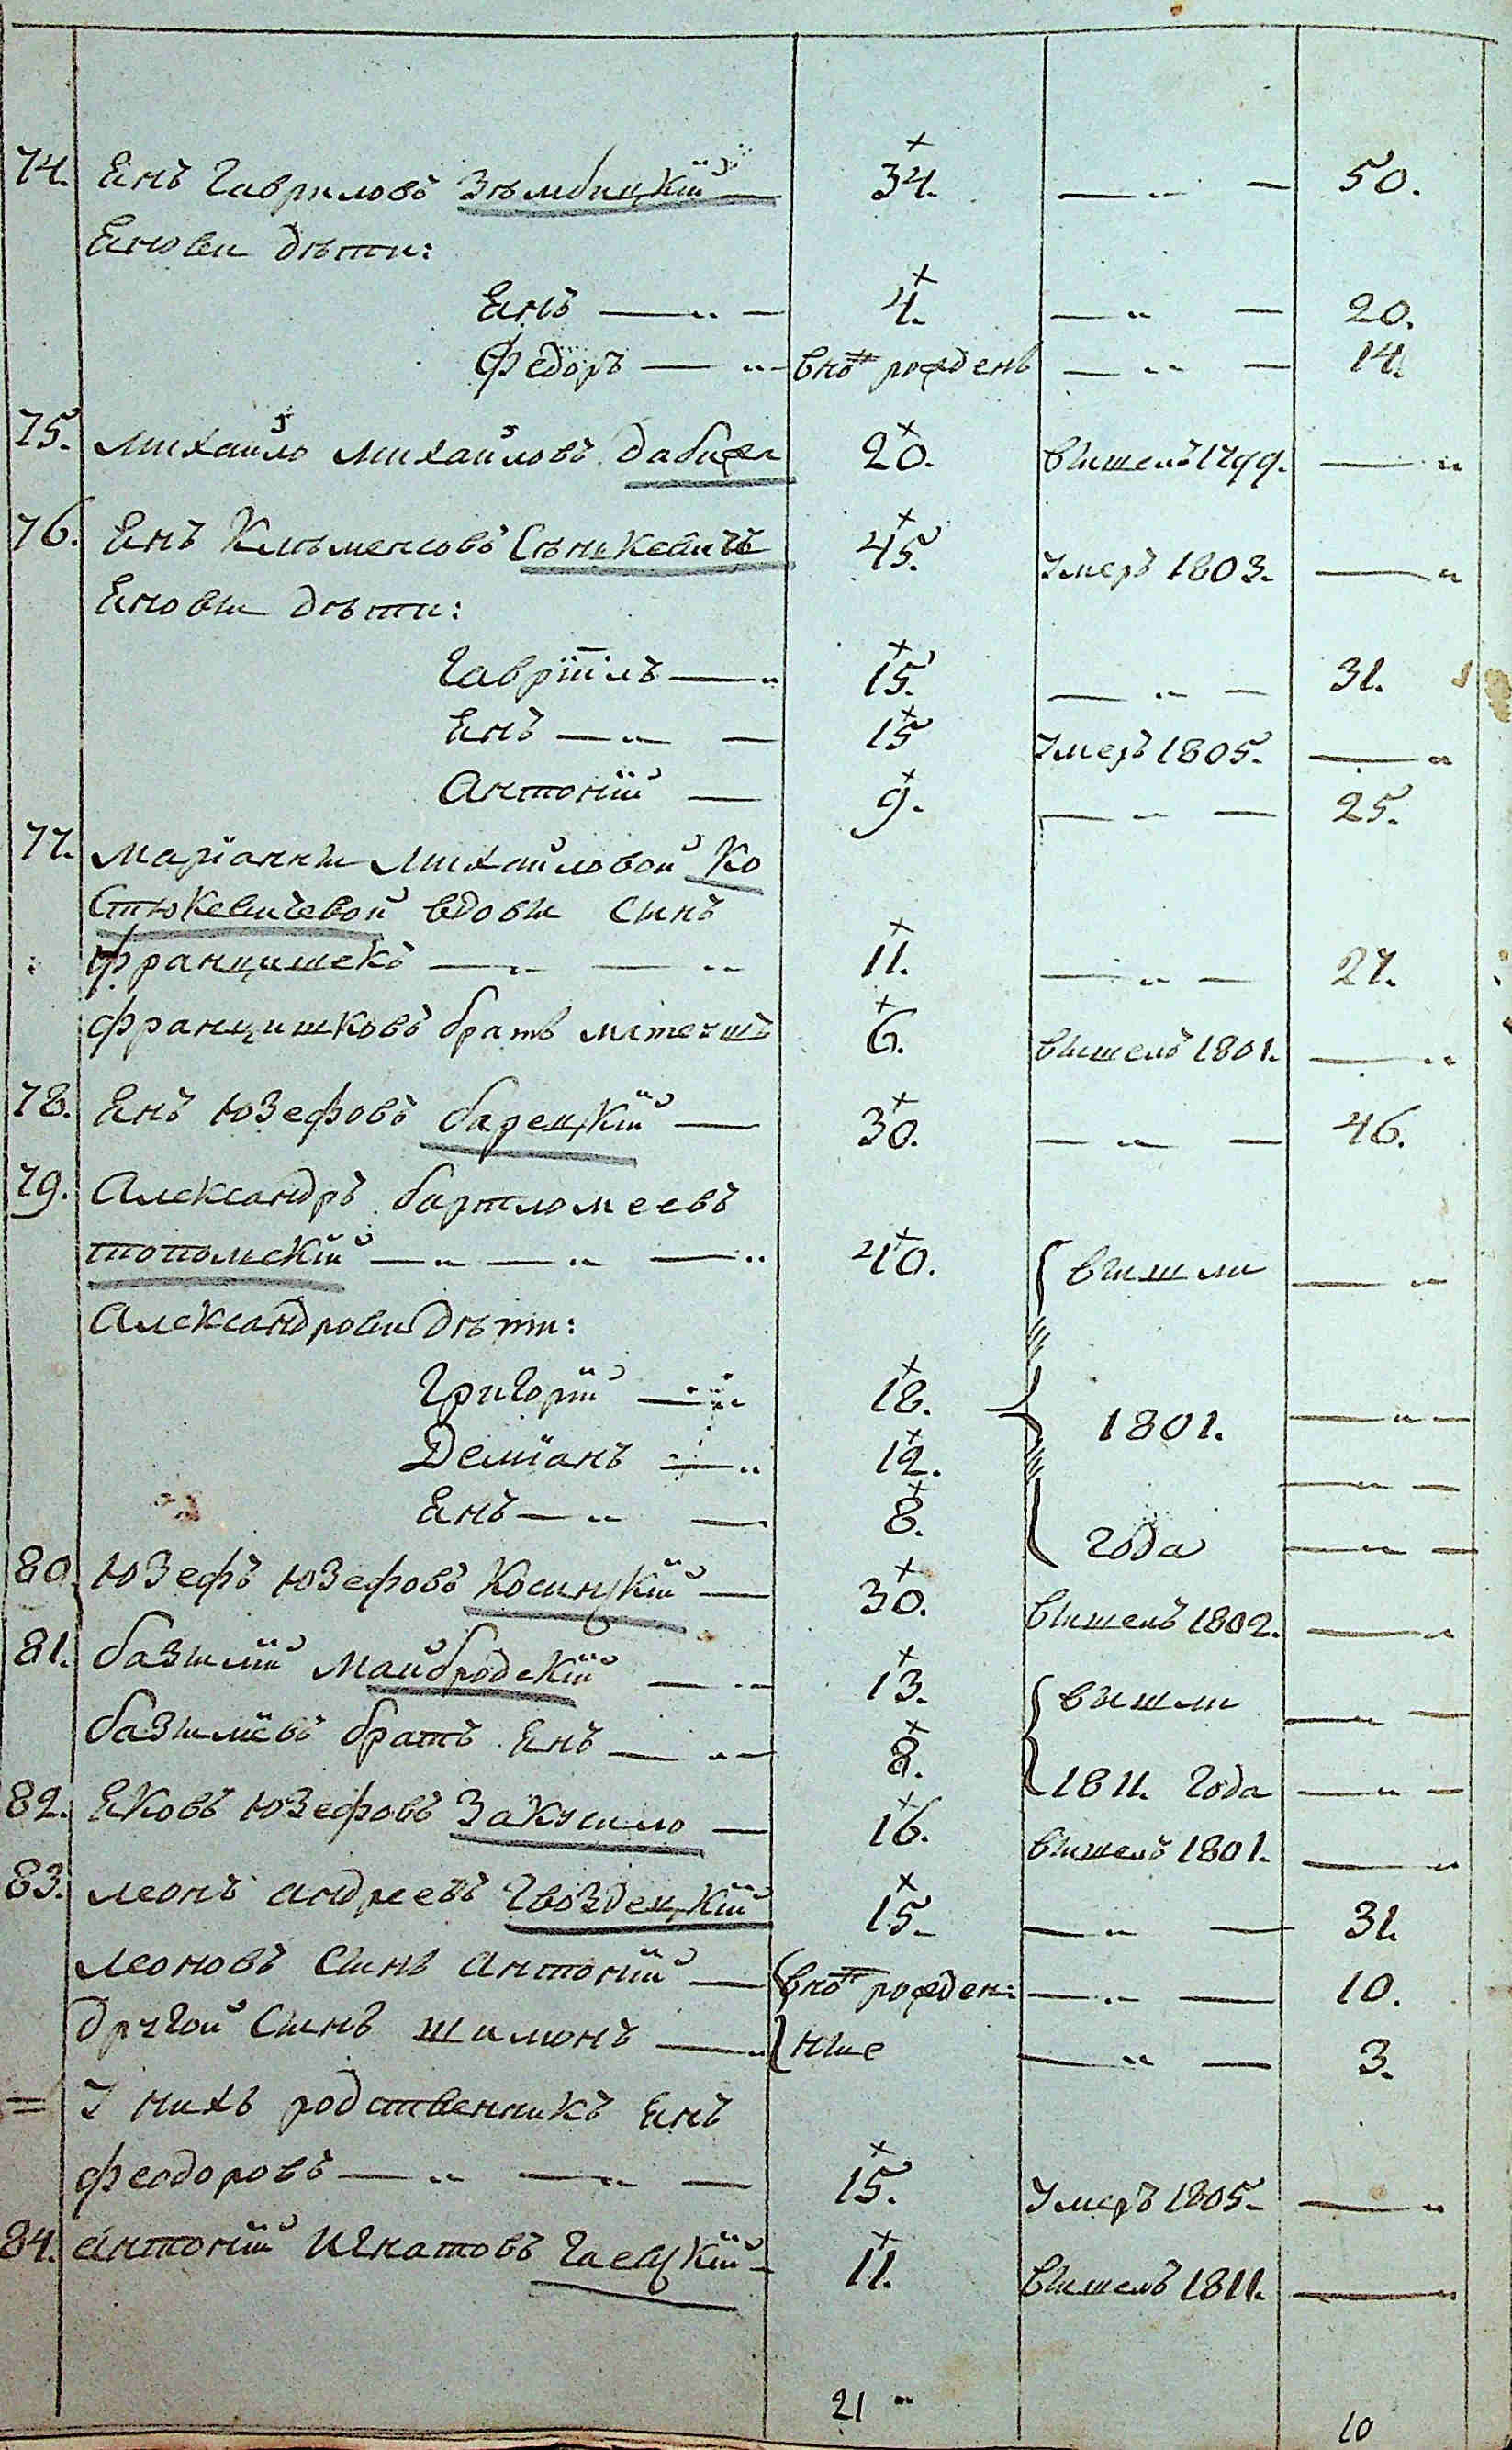 74. Янъ Гавриловъ Зѣмбицкій — 34. — „ — 50.
Яновы дѣти:
Янъ — „ — 4. — „ — 20.
Федоръ — „ вновь рожденъ — „ — 14.
75. Михайло Михайловъ Дабижа 20. вышелъ 1799. — „
76. Янъ Клѣменсовъ Сѣнкевичъ 45. Умеръ 1803. — „
Яновы дѣти:
Гавріилъ — „ 15. — „ — 31.
Янъ — „ — 15 Умеръ 1805. — „
Антоній — 9. — „ — 25.
77. Маріанны Михайловой Ко
стюкевичевой вдовы сынъ
Францишекъ — „ — „ 11. — „ — 27.
Францишковъ братъ 6. вышелъ 1801. — „
78. Янъ Юзефовъ Барецкій — 30. — „ — 46.
79. Александръ Бартломеевъ
Топольскій — „ — „ — „ 40. вышли — „
Александровы дѣти:
Григорій — „ 18. 1801. — „ —
Деміанъ — „ 12. — „ —
Янъ — „ — 8. года — „ —
80. Юзефъ Юзефовъ Косинскій — 30. вышелъ 1802. — „
81. Базылій Майбродскій — „ 13. вышли — „ —
Базыліевъ братъ Янъ — „ 8. 1811. года — „ —
82. Яковъ Юзефовъ Закусило — 16. вышелъ 1801. — „
83. Леонъ Андреевъ Гвоздецкій 15. — „ — 31.
Леоновъ сынъ Антоній — вновь рожден: — „ — 10.
Другой сынъ Шимонъ — „ ные — „ — 3.
= У нихъ родственникъ Янъ
Феодоровъ — „ — „ — 15. Умеръ 1805. — „
84. Антоній Игнатовъ Гаевскій — 11. вышелъ 1811. — „
21 „ 10